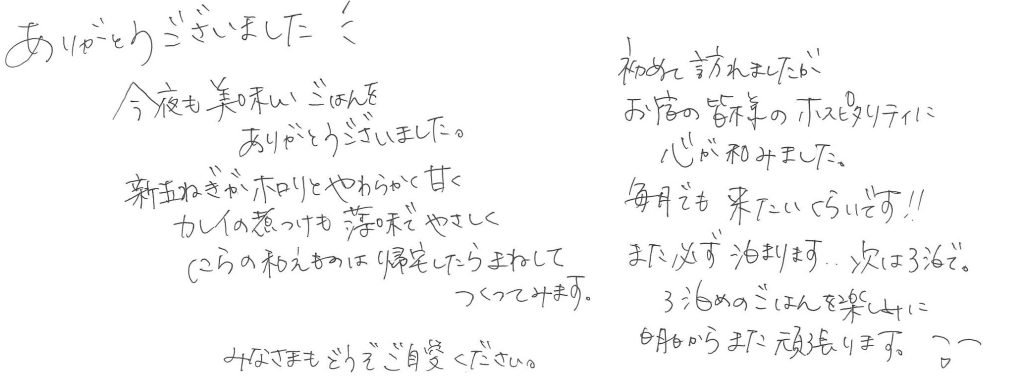 ありがとうございました
今夜も美味しいごはんを
ありがとうございました。
新玉ねぎがホロリとやわらかく甘く
カレイの煮つけも薄味でやさしく
にらの和えものは帰宅したらまねして
つくってみます。
みなさまもどうぞご自愛ください。
初めて訪れましたが
お宿の皆様のホスピタリティに
心が和みました。
毎月でも来たいくらいです!!
また必ず泊まります‥次は3泊で。
3泊めのごはんを楽しみに
明日からまた頑張ります。